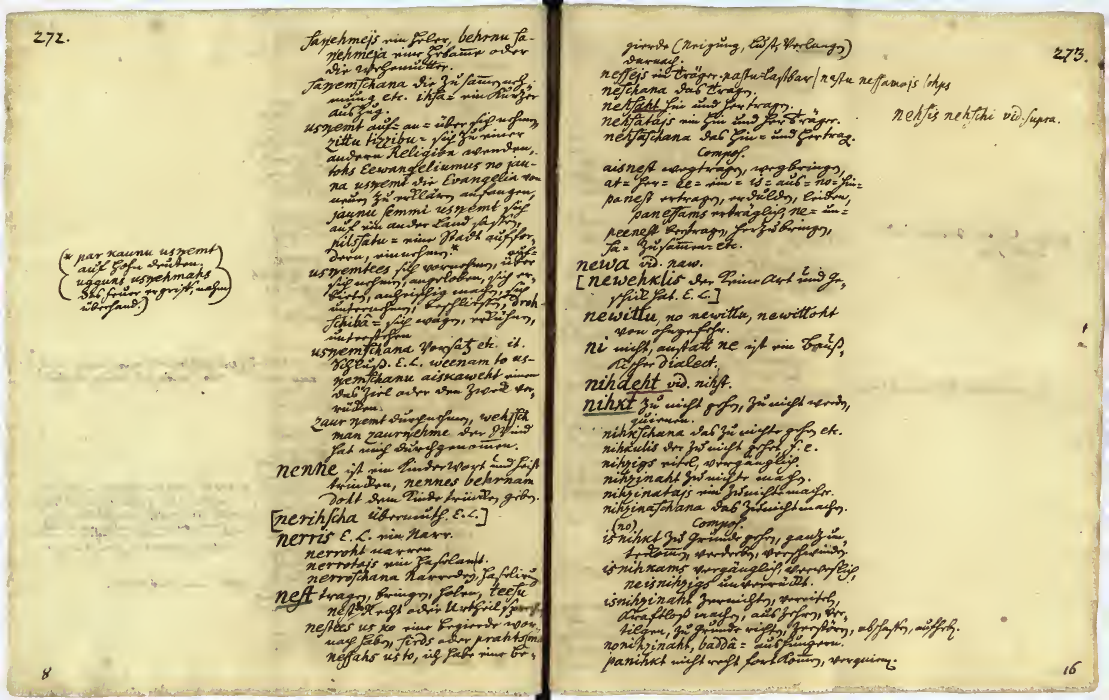 272.
saņehmejs ein Heler, behrnu sa-
ņehmeja eine Hebamme oder
die Wehemutter.
saņemschana die Zusammenneh-
mung etc. ihsa= ein kurzer
Auszug.
usņemt auf= an= über sich nehmen
zittu tizzibu= sich zu einer
andern Religion wenden,
tohs Eewangeliumus no jau-
na usņemt die Evangelia von
neuen zu erklären anfangen,
jaunu semmi usņemt sich
auf ein ander Land setzen,
pilssatu= eine Stadt auffor-
dern, einnehmen.*
(* par kaunu usņemt
auf Hohn deuten.
ugguns usņehmahs
das Feuer ergrif, nahm
überhand.)
usņemtees sich vornehmen, über
sich nehmen, angeloben, sich er-
bieten, anheischig machen, sich
unternehmen, beschließen, droh-
schibâ= sich wagen, erkühnen,
unterstehen
usņemschana Vorsatz etc. it.
Schluß. E.L. weenam to us-
ņemschanu aiskaweht einem
das Ziel oder den Zweck ver-
rücken.
zaur ņemt durchnehmen, wehjsch
man zaurņehme der Wind
hat mich durchgenommen.
nenne ist ein Kinderwort und heist
trincken, nennes behrnam
doht dem Kinde trincken geben.
[nerihscha Übermuth. E.L.]
nerris E.L. ein Narr.
nerroht narren
nerrotajs ein Haselant.
nerroschana Narreden, Haseliren
nest tragen, bringen, holen, teesu
nest Recht oder Urtheil sprech
nestees us ko eine Begierde wor-
nach haben, sirds oder prahts man
nessahs us to, ich habe eine Be-
8
273.
gierde (Neigung, Lust, Verlangen)
darnach.
nessejs ein Träger. nastu lastbar / nastu nessamajs lohps
neschana das Tragen.
nehsaht hin und her tragen.
nehsis nehschi vid. supra.
nehsatajs ein hin und her Träger.
nehsaschana das Hin= und Hertrag.
Compos.
aisnest wegtragen, wegbringen,
at= her= ee= ein= is= aus= no= hin-
panest ertragen, erdulden, leiden,
panessams erträglich ne= un=
peenest bertragen, herzubringen,
sa= zusammen= etc.
newa vid. naw.
[newehklis der keine Art und Ge-
schick hat. E.L.]
newillu, no newillu, newilloht
von ohngefehr.
ni nicht, anstatt ne ist ein Bauß-
kischer Dialect.
nihdeht vid. nihst.
nihkt zu nicht gehen, zu nicht werden,
quienen.
nihkschana das zu nichte gehen etc.
nihkulis der zu nicht gehet, f. e.
nihzigs eitel, vergänglich.
nihzinaht zu nichte machen.
nihzinatajs ein Zunichtemacher.
nihzinaschana das Zunichtmachen.
(no) Compos.
isnihkt zu Grunde gehen, gantz un-
terkommen, verderben, verschwinden.
isnihkams vergänglich, verweslich,
neisnihzigs unverrückt.
isnihzinaht zernichten, vereiteln,
krafftloß machen, auszehren, ver-
tilgen, zu Grunde richten, zerstören, abschaffen, aufheben.
nonihzinaht, baddâ= aushungern.
panihkt nicht recht fort kommen, verquienen.
16